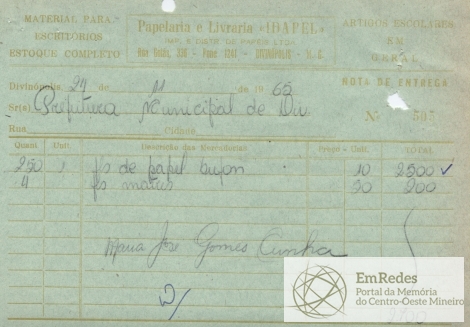 MATERIAL PARA ESCRITORIOS ESTOQUE COMPLETO
Papelaria e Livraria «IDAPEL»
IMP. E DISTR. DE PAPEIS LTD.
Rua Goiás, - Fone, 1241 - DIVINÓPOLIS - M. G.
ARTIGOS ESCOLARES EM GERAL
Divinópolis, 24 de 11 de 1965
NOTA DE ENTREGA
Sr(s) Prefeitura Municipal de Div.
Nº 507
Rua Cidade
Quant Unit. Descrição das Mercadorias Preço - Unit. TOTAL
250 fs de papel 10 2500 ✓
4 fs 50 200
Maria José Gomes Cunha
EmRedes
Portal da Memória
do Centro-Oeste Mineiro